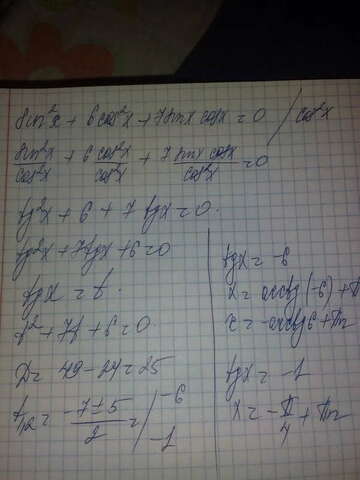 sin²x + 6cos²x + 7sinx cosx = 0 / cos²x
sin²x/cos²x + 6 cos²x/cos²x + 7 sinx cosx/cos²x = 0
tg²x + 6 + 7 tgx = 0.
tg²x + 7tgx + 6 = 0
tgx = t.
t² + 7t + 6 = 0.
D = 49 - 24 = 25
t₁,₂ = (-7 ± 5)/2 = / -6
-1
tgx = -6
x = arctg(-6) + π
x = -arctg6 + πn
tgx = -1
x = -π/4 + πn